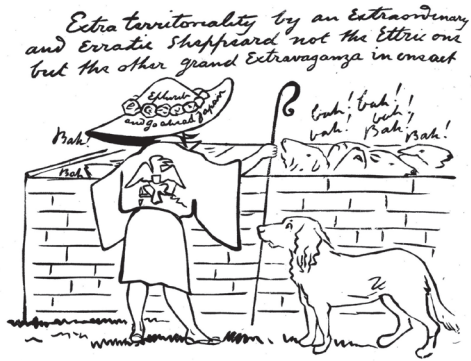 Extra territoriality by an Extraordinary
and Erratic Sheppeard not the Ettric one
but the other grand Extravaganza in one act
Ephemb
and go ahead Japan
Bah!
Bah!
bah! bah!
bah! bah!
Bah! Bah!